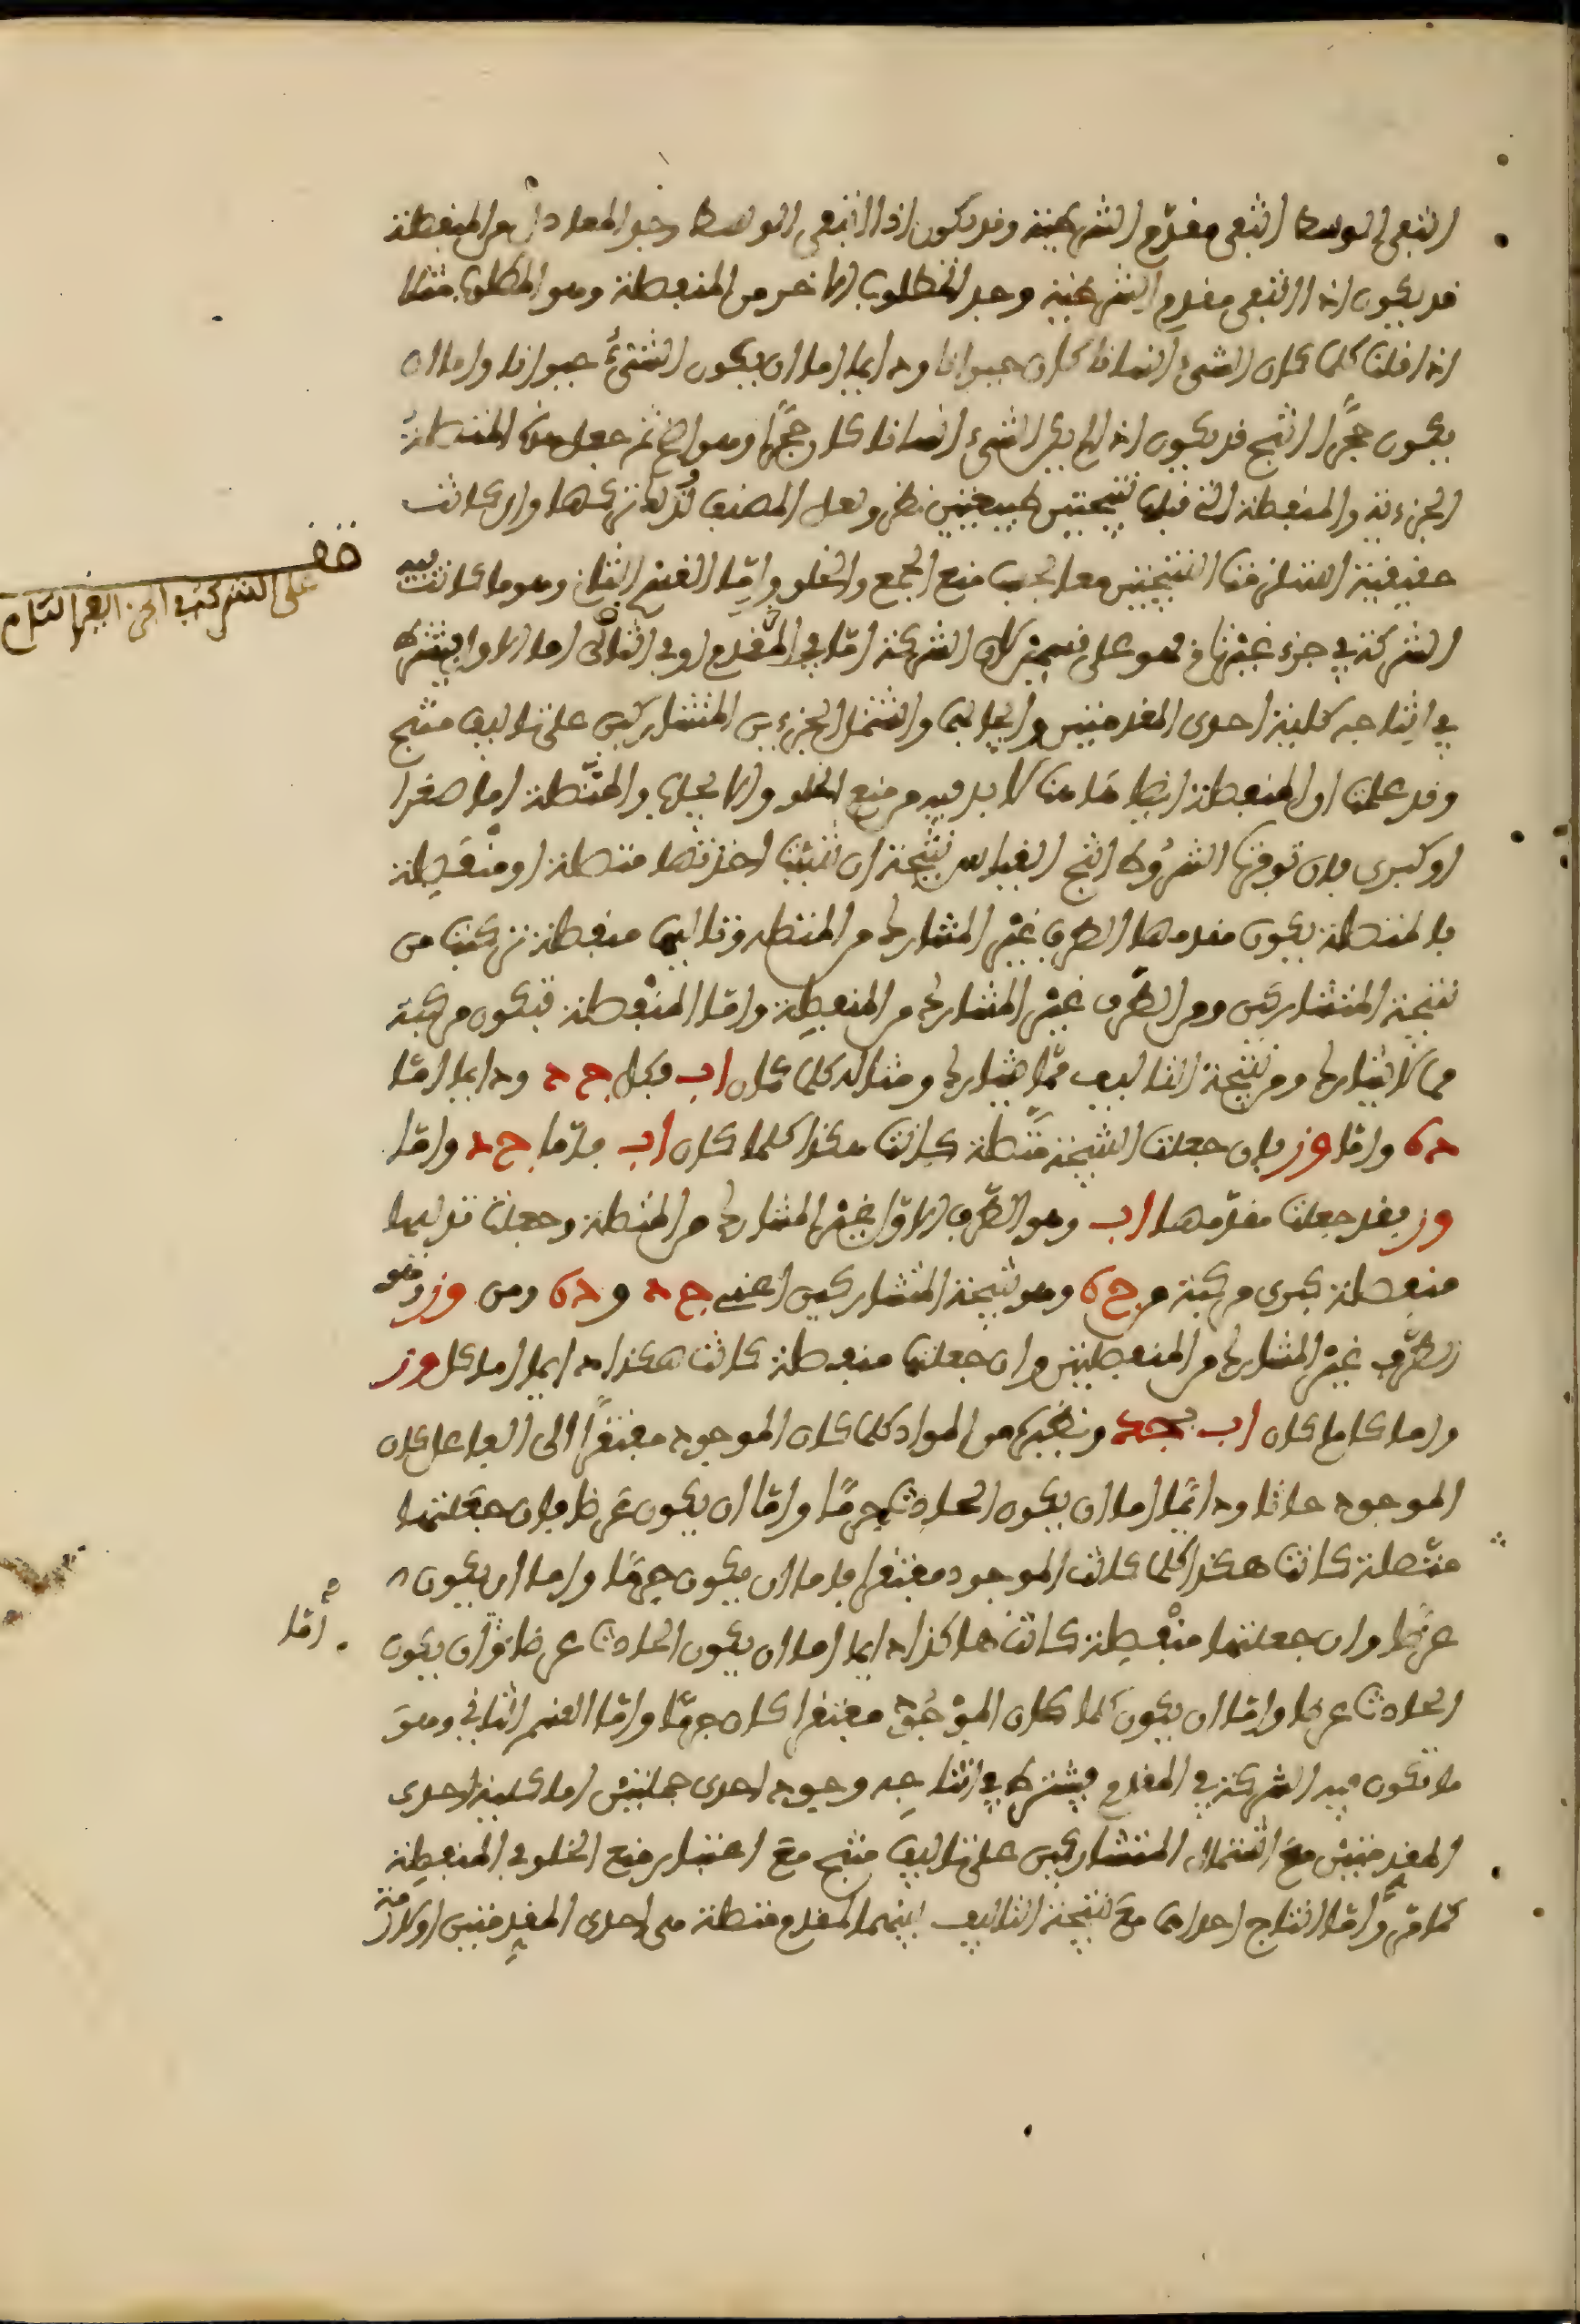 انتفى الوسط انتفى مقدم الشرطية وقد يكون اذا انتفى الوسط وجد المعاد من المنفصلة
قد يكون اذا انتفى مقدم الشرطية وجد المطلوب الاخر من المنفصلة وهو المطلوب مثلا
اذا قلنا كلما كان الشيء انسانا كان حيوانا ودايما اما ان يكون الشيء حيوانا واما ان
يكون حجرا انتج قد يكون اذا لم يكن الشيء انسانا كان حجرا وهو ثم جعل هذه المتصلة
الجزءية والمنفصلة التي قبلها نتيجتين طبيعيتين نظر ولعل المصنف لذلك تركها وان كانت
حقيقية استلزمت النتيجتين معا بحسب منع الجمع والخلو واما القسم الثاني وهو ما كانت فيه
الشركة في جزء غير تام فهو على قسمين لان الشركة اما في المقدم او في التالي اما الاول فيشترط
في انتاجه كلية احدى المقدمتين وايجابها واشتمال الجزءين المتشاركين على تاليف منتج
وقد علمت ان المنفصلة ايضا هنا لا بد فيه من منع الخلو والايجاب والمتصلة اما صغرا
او كبرى فان توفرت الشروط انتج القياس نتيجة ان شئت اخذتها متصلة او منفصلة
فالمتصلة يكون مقدمها الطرف غير المشارك من المتصلة وتاليها منفصلة تركبت من
نتيجة المتشاركين ومن الطرف غير المشارك من المنفصلة واما المنفصلة فتكون مركبة
مما لا يشارك ومن نتيجة التاليف مما يشارك ومثاله كلما كان اب فكل ج د ودايما اما
د ه واما وز فان جعلت النتيجة متصلة كانت هكذا كلما كان اب فاما ج د واما
وز فقد جعلت مقدمها اب وهو الطرف الاول غير المشارك من المتصلة وجعلت تاليها
منفصلة كبرى مركبة من ج ه وهو نتيجة المتشاركين اعني ج د و د ه ومن وز وهو
الطرف غير المشارك من المنفصلتين وان جعلتها منفصلة كانت هكذا دايما اما كل وز
واما كلما كان اب فج د ونظيره من المواد كلما كان الموجود مفتقرا الى الفاعل كان
الموجود حادثا ودايما اما ان يكون الحادث جرما واما ان يكون عرضا فان جعلتهما
متصلة كانت هكذا كلما كانت الموجود مفتقرا فاما ان يكون جرما واما ان يكون
عرضا وان جعلتهما منفصلة كانت هاكذا دايما اما ان يكون الحادث عرضا وان يكون
اما
الحادث عرضا واما ان يكون كلما كان الموجود مفتقرا كان جرما واما القسم الثاني وهو
ما تكون فيه الشركة في المقدم فيشترط في انتاجه وجود احدى جملتين اما كلية احدى
المقدمتين مع اشتمال المتشاركين على تاليف منتج مع اعتبار منع الخلو في المنفصلة
كما مر واما انتاج احداها مع نتيجة التاليف المقدم متصلة من احدى المقدمتين او